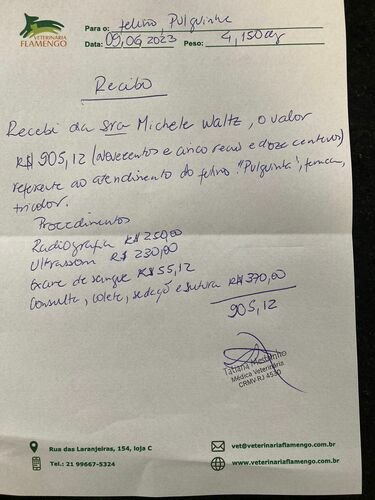 VETERINÁRIA
FLAMENGO
Para o: felino Pulguinha
Data: 09,06,2023 Peso: 4,150kg
Recibo
Recebi da Sra Michele Waltz, o valor
R$ 905,12 (novecentos e cinco reais e doze centavos)
referente ao atendimento do felino "Pulguinha", femea,
tricolor.
Procedimentos
Radiografia R$ 250,00
Ultrassom R$ 230,00
Exame de sangue R$ 55,12
Consulta, coleta, sedação e sutura R$ 370,00
905,12
Tatiana
Médica Veterinária
CRMV-RJ 4530
Rua das Laranjeiras, 154, loja C
Tel.: 21 99667-5324
vet@veterinariaflamengo.com.br
www.veterinariaflamengo.com.br